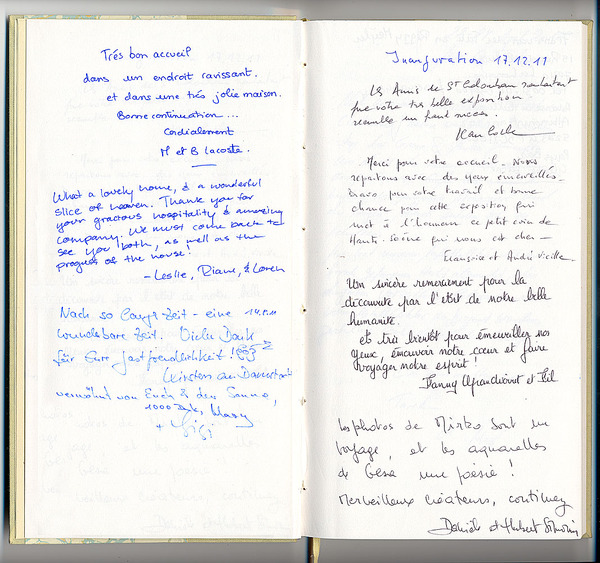 Trés bon accueil
dans un endroit ravissant.
et dans une trés jolie maison.
Bonne continuation...
Cordialement
M et B Lacoste.
What a lovely home, & a wonderful
slice of heaven. Thank you for
your gracious hospitality & amazing
company. We must come back to
see you both, as well as the
progress of the house!
- Leslie, Diane, & Loren
Nach so langer Zeit - eine
wunderbare Zeit. Vielen Dank
für Eure Gastfreundlichkeit!
Kirsten aus
verwöhnt von Euch & der Sonne,
1000 Dank, Mary
+ Gigi
Inauguration 17.12.11
Les Amis de St Colomban souhaitent
que votre très belle exposition
remette un franc succès.
Merci pour votre accueil. Nous
repartons avec des yeux émerveillés.
Bravo pour votre travail et bonne
chance pour cette exposition qui
met à l'honneur ce petit coin de
Haute-Saône qui nous est cher -
Françoise et André
Un sincère remerciement pour la
découverte par l'objet de notre belle
humanité.
et très bientôt pour émerveiller nos
yeux, émouvoir notre cœur et faire
voyager notre esprit!
Fanny
Les photos de Mirko sont un
voyage, et les aquarelles
de Gésa une poésie!
Merveilleux créateurs, continuez
Daniele et Hubert